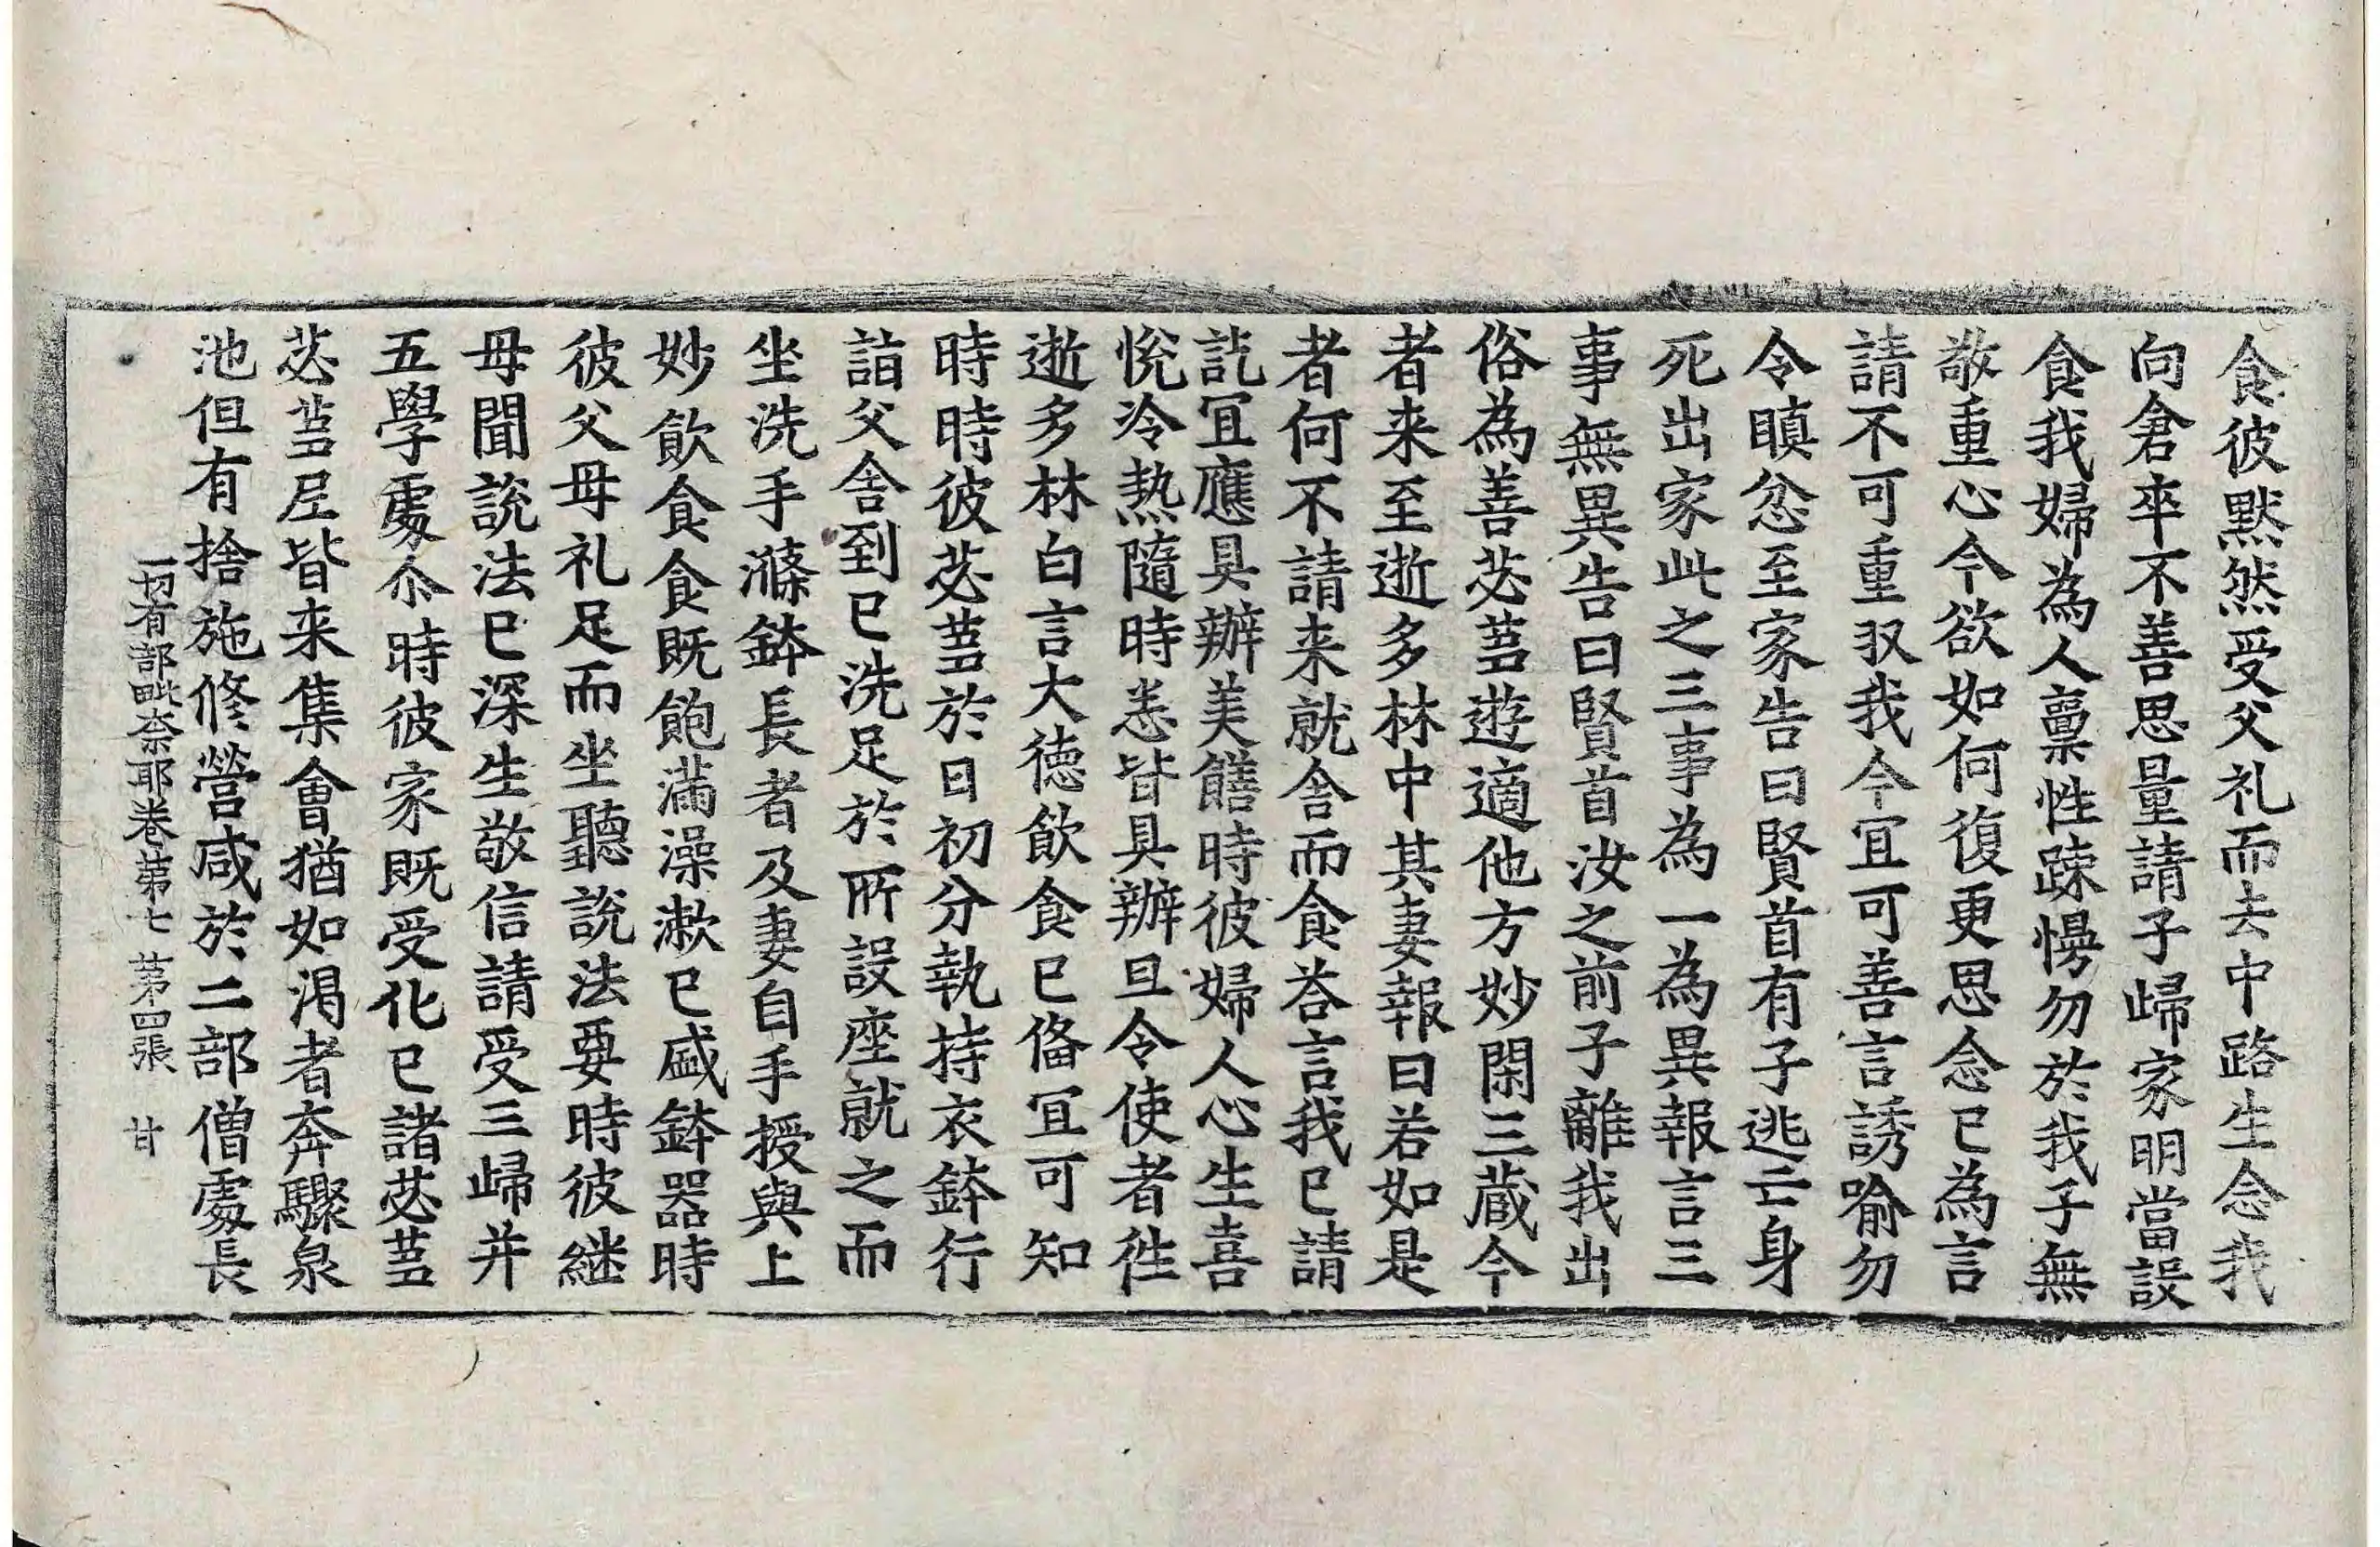 食彼默然受父礼而去中路生念我
向倉卒不善思量請子歸家明當設
食我婦為人禀性踈慢勿於我子無
敬重心今欲如何復更思念已為言
請不可重㧞我今宜可善言誘喻勿
令瞋忿至家告曰賢首有子逃亡身
死出家此之三事為一為異報言三
事無異告曰賢首汝之前子離我出
俗為善苾蒭遊適他方妙閑三蔵今
者来至逝多林中其妻報曰若如是
者何不請来就舎而食荅言我已請
訖宜應具辦美饍時彼婦人心生喜
悅冷熱隨時恙皆具辦旦令使者徃
逝多林白言大德飲食已俻宜可知
時時彼苾蒭於日初分執持衣鉢行
詣父舎到已洗足於所設座就之而
坐洗手滌鉢長者及妻自手授與上
妙飲食食既飽滿澡漱已盛鉢器時
彼父母礼足而坐聽說法要時彼継
母聞說法已深生敬信請受三歸并
五學䖏尒時彼家既受化已諸苾蒭
苾蒭尼皆来集會猶如渇者奔驟泉
池但有捨施修營咸於二部僧䖏長
一切有部毗奈耶卷苐七 苐四張 甘